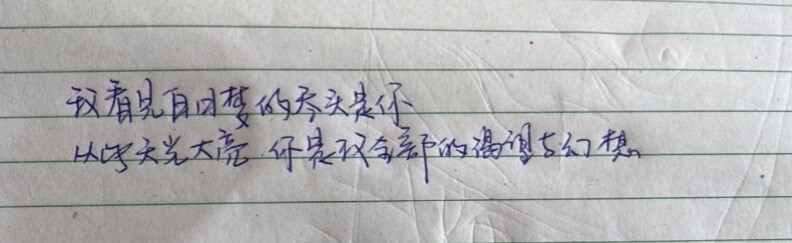 我看见白日梦的尽头是你
从此天光大亮 你是我全部的渴望与幻想